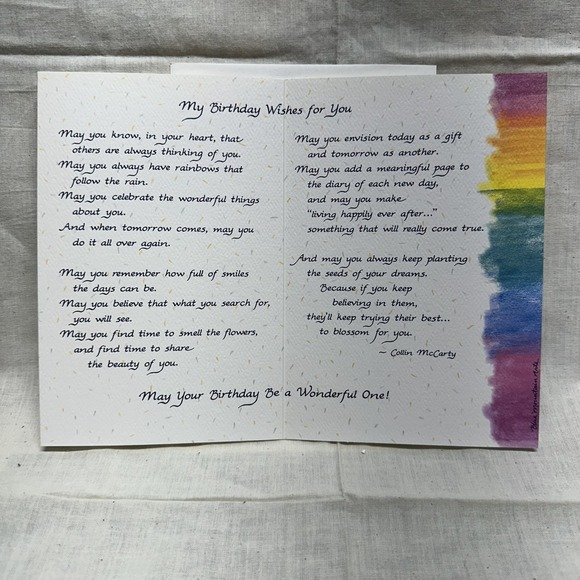 My Birthday Wishes for You
May you know, in your heart, that
others are always thinking of you.
May you always have rainbows that
follow the rain.
May you celebrate the wonderful things
about you.
And when tomorrow comes, may you
do it all over again.
May you remember how full of smiles
the days can be.
May you believe that what you search for,
you will see.
May you find time to smell the flowers,
and find time to share
the beauty of you.
May you envision today as a gift
and tomorrow as another.
May you add a meaningful page to
the diary of each new day,
and may you make
"living happily ever after..."
something that will really come true.
And may you always keep planting
the seeds of your dreams.
Because if you keep
believing in them,
they'll keep trying their best...
to blossom for you.
~ Collin McCarty
May Your Birthday Be a Wonderful One!